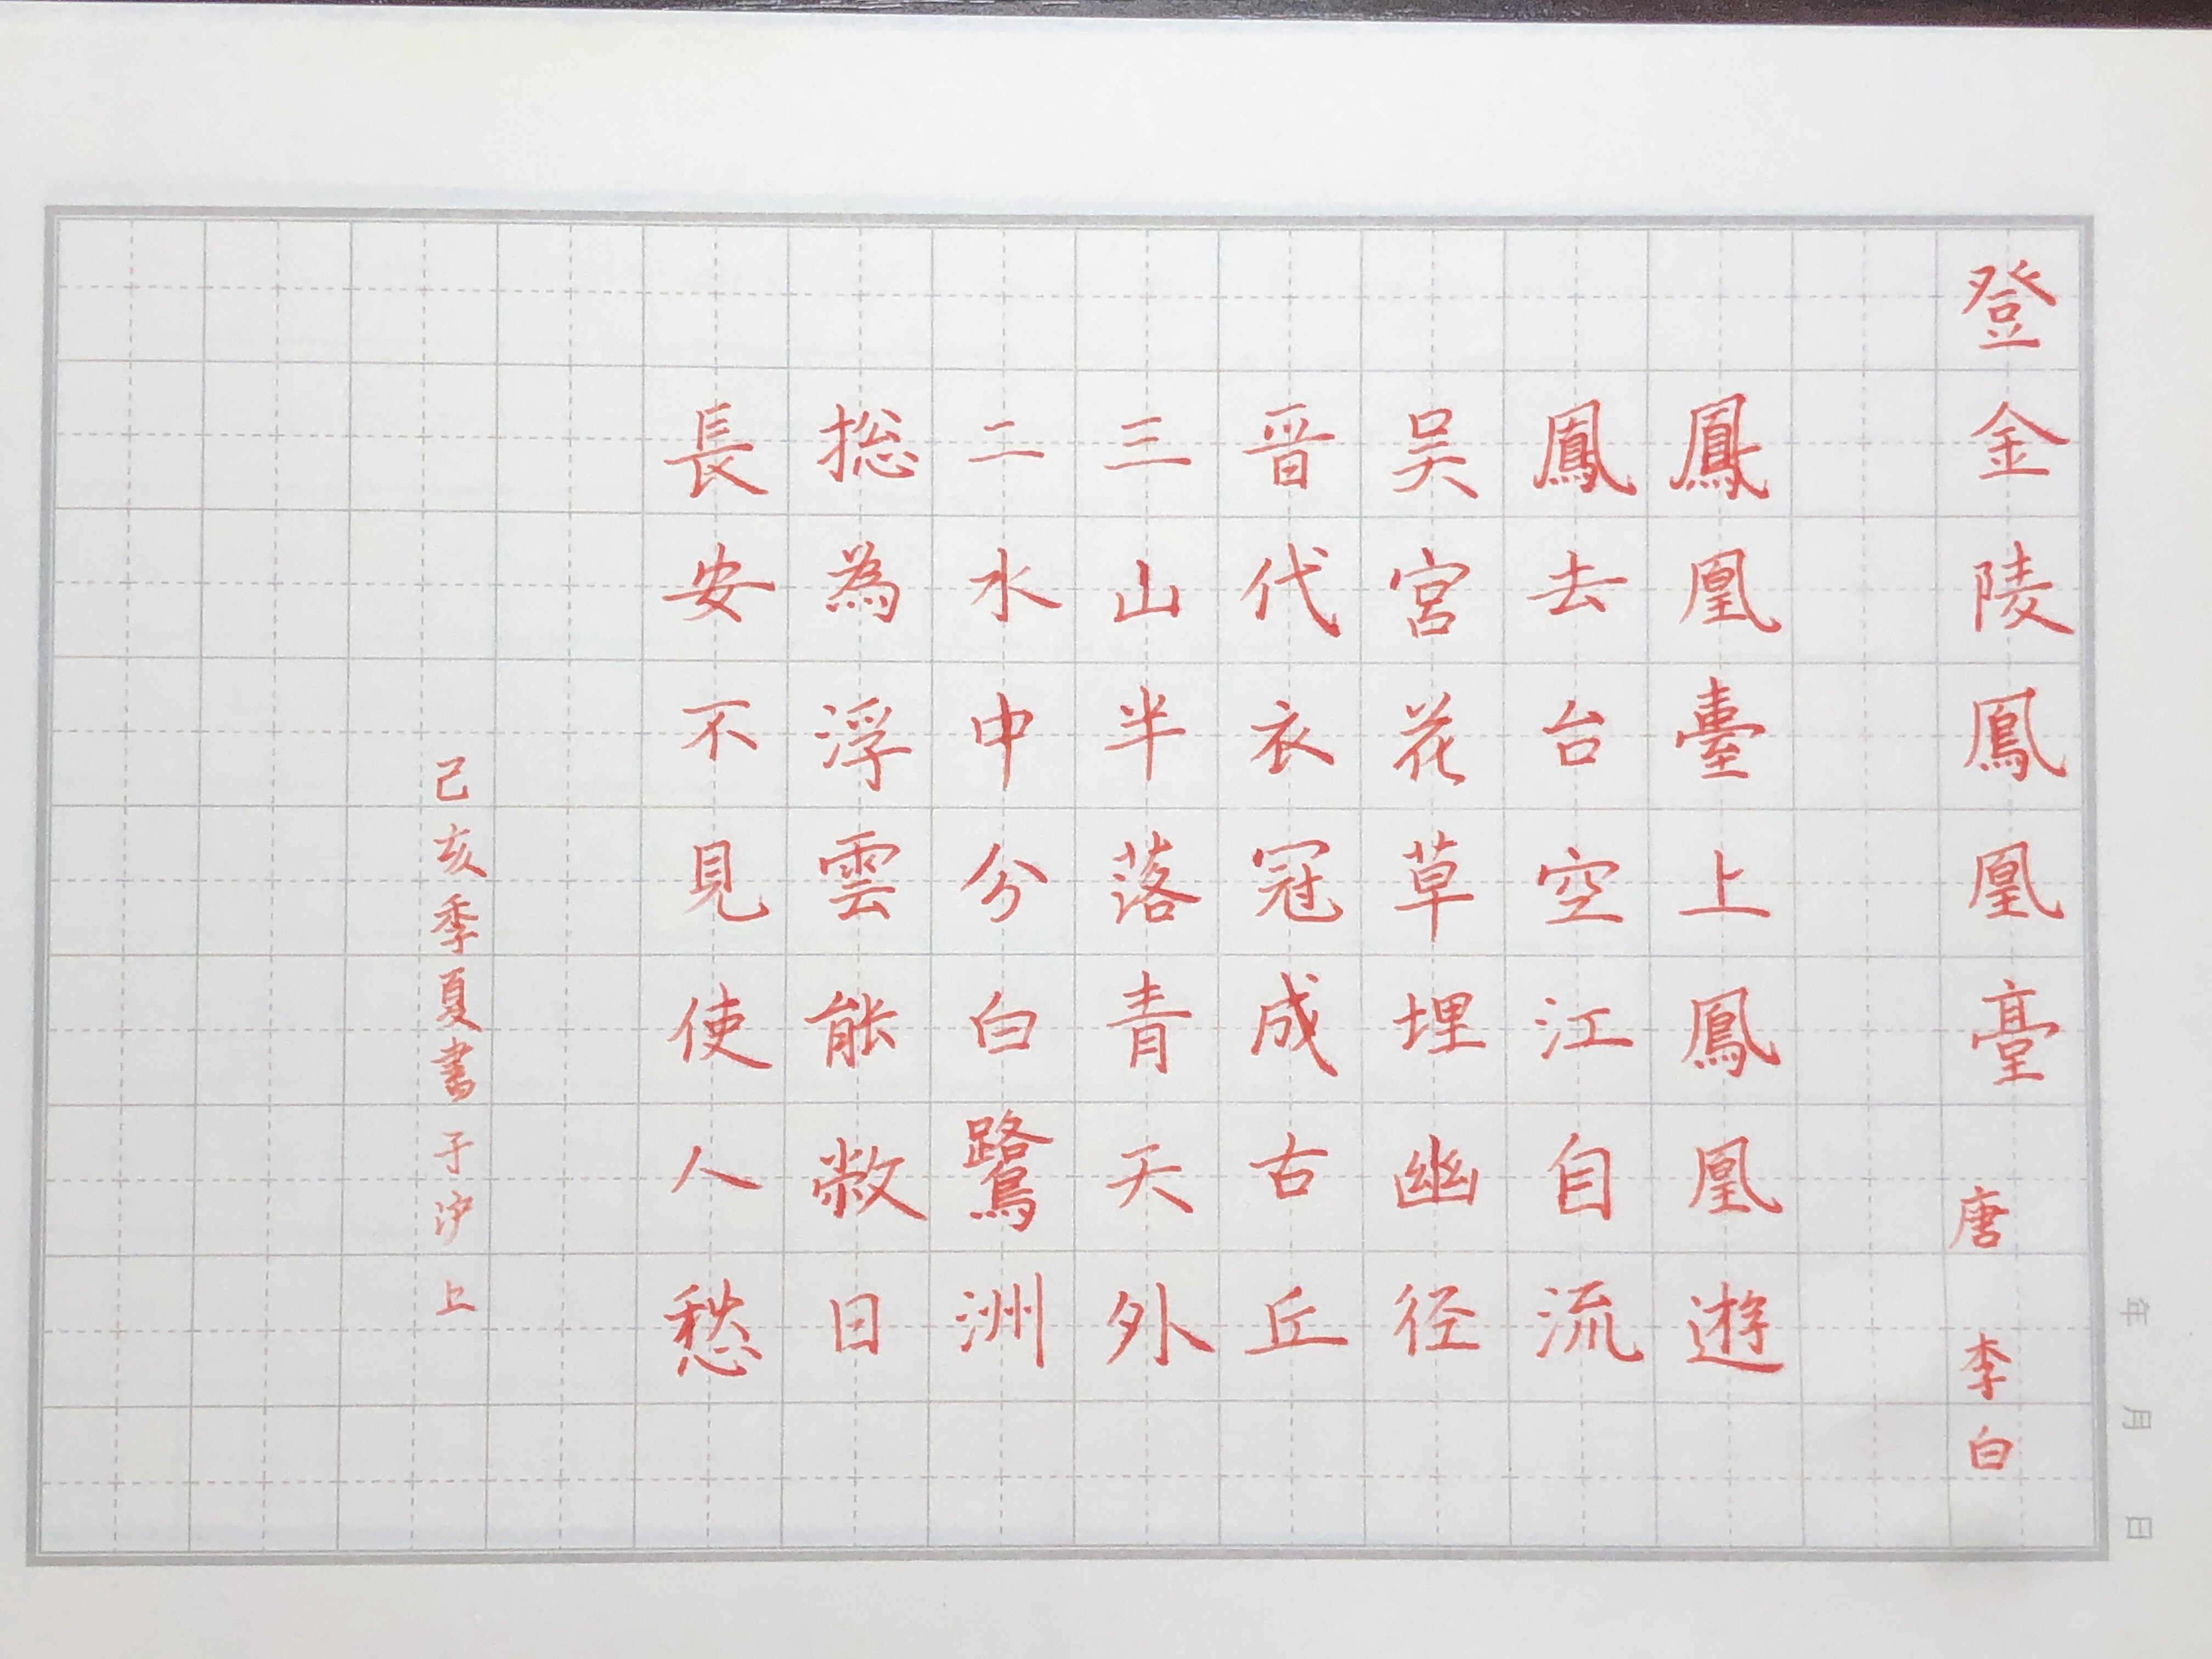 登金陵鳳凰臺 唐 李白
鳳凰臺上鳳凰遊
鳳去台空江自流
吴宮花草埋幽径
晋代衣冠成古丘
三山半落青天外
二水中分白鷺洲
総為浮雲能敝日
長安不見使人愁
己亥季夏書 于沪上
年 月 日